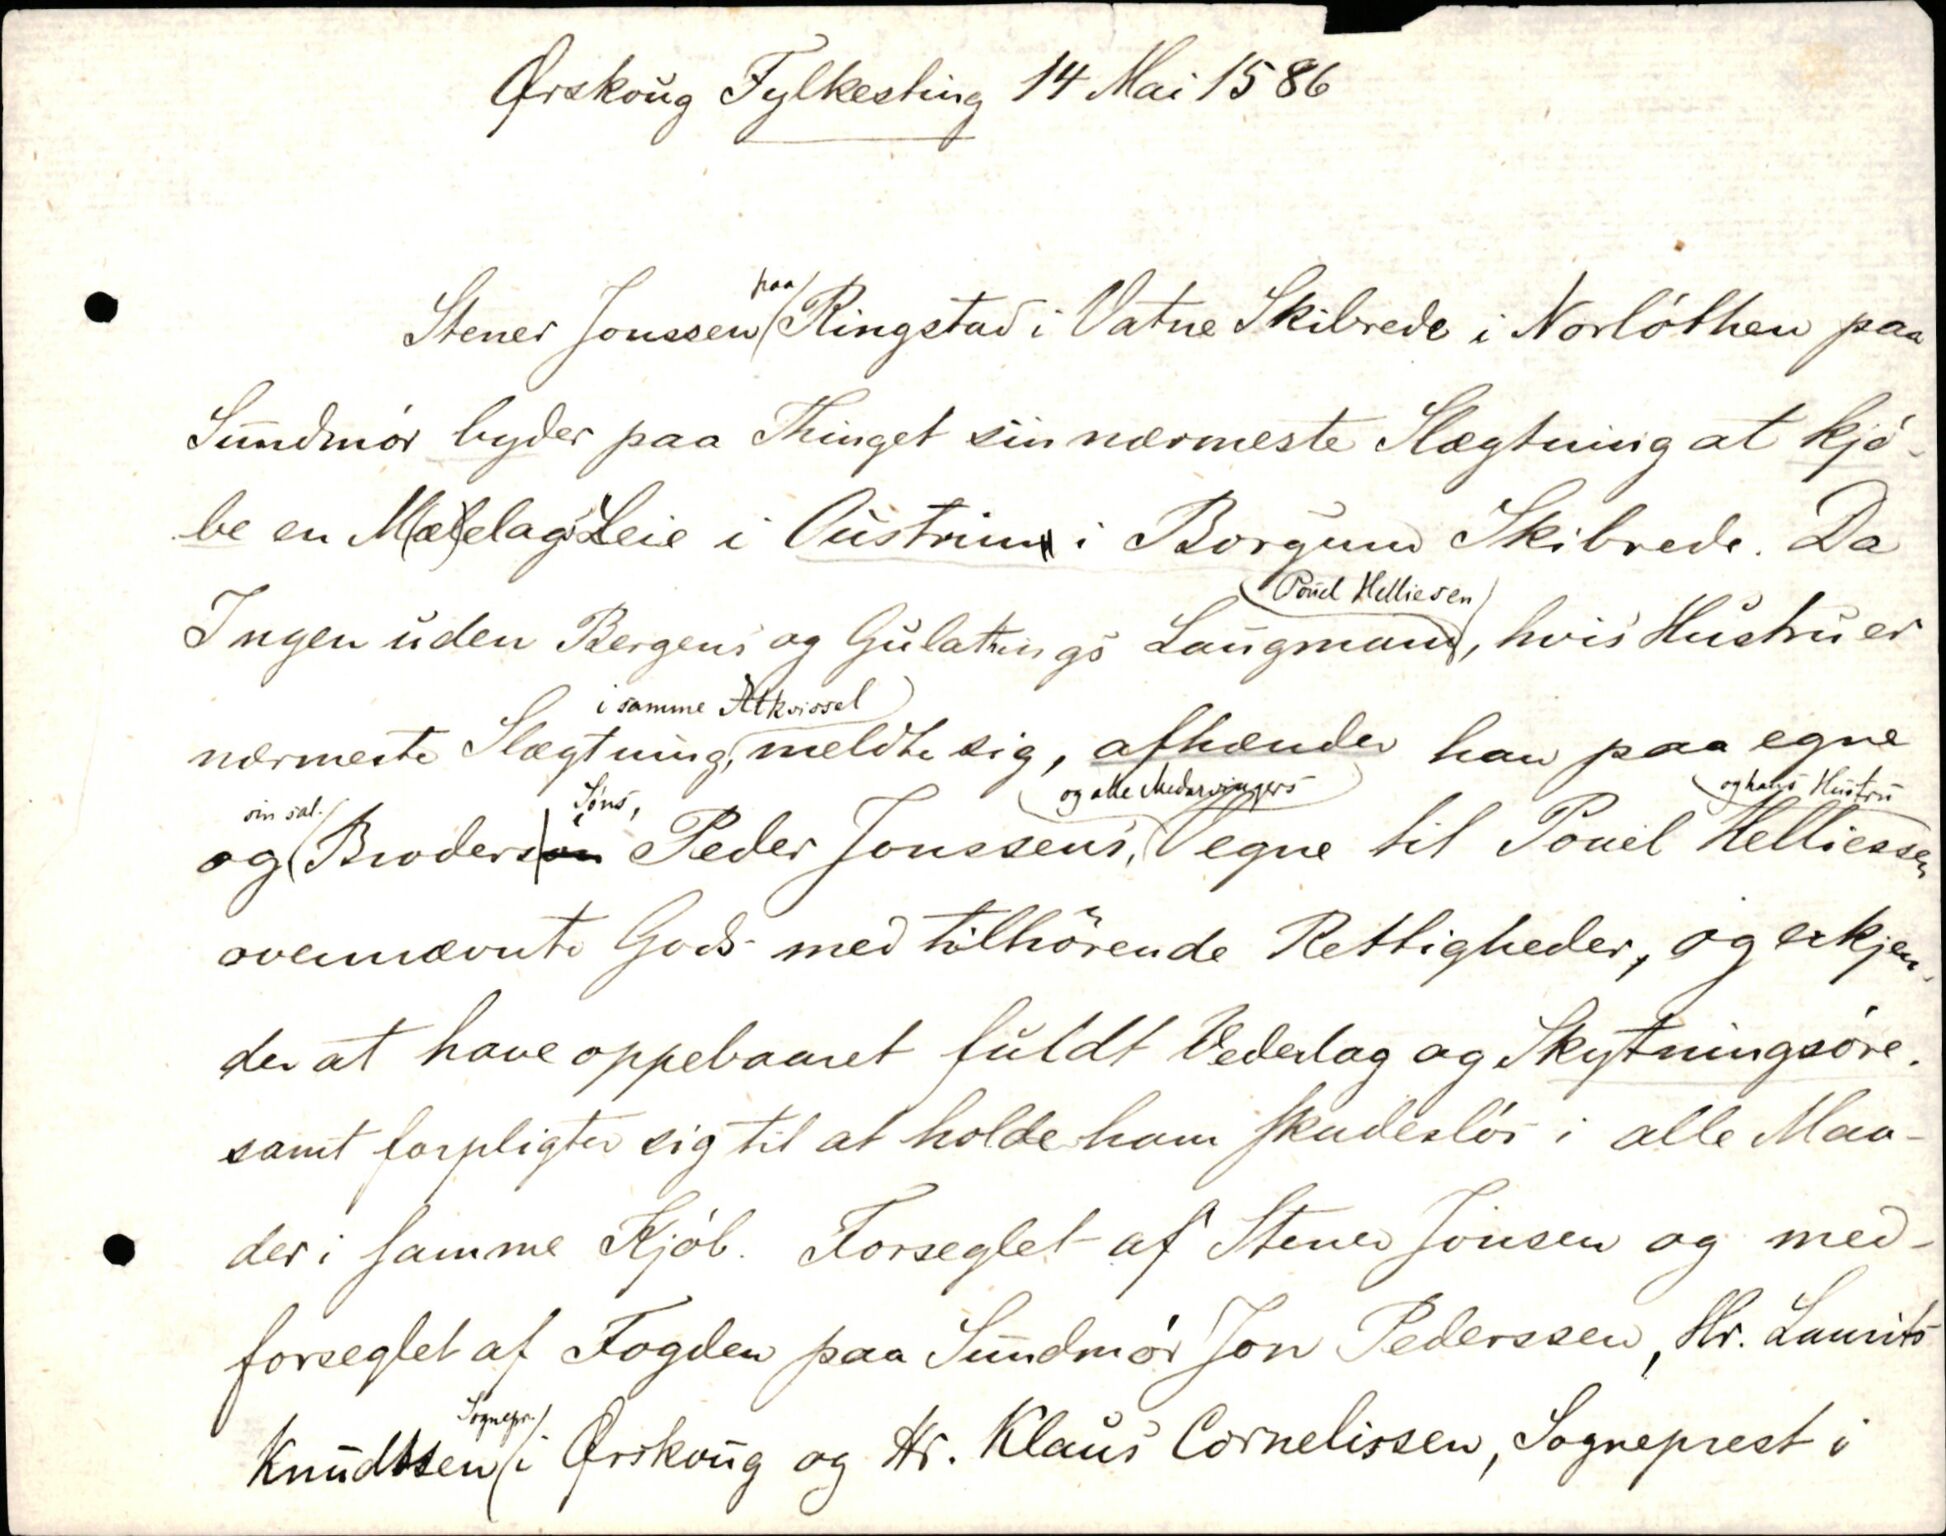 Ørskoug Fylkesting 14 Mai 1586
Stener Jonssen paa Ringstad i Vatne Skibrede i Norlöthen paa
Sundmör byder paa Thinget sin nærmeste Slægtning at kjö-
be en M(æ)lelags Leie i Oustrim i Borgund Skibrede. Da
Ingen uden Bergens og Gulatings Laugmand Pouel Helliesen, hvis Hustru er
nærmeste Slægtning, i samme Ætkvissel meldte sig, afhænder han paa egne
og sin sal. Broders Söns, Peder Jonssens, og alle Medarvingers Vegne til Pouel Helliessen og hans Hustru
ovennævnte Gods med tilhörende Rettigheder, og erkjen-
der at have oppebaaret fuldt Vederlag og Skytningsöre.
samt forpligter sig til at holde ham skadeslös i alle Maa-
der i samme Kjöb. Forseglet af Stener Jonsen og med-
forseglet af Fogden paa Sundmör Jon Pederssen, Hr. Laurits
Knudssen Sognepr. i Ørskoug og Hr. Klaus Cornelissen, Sogneprest i